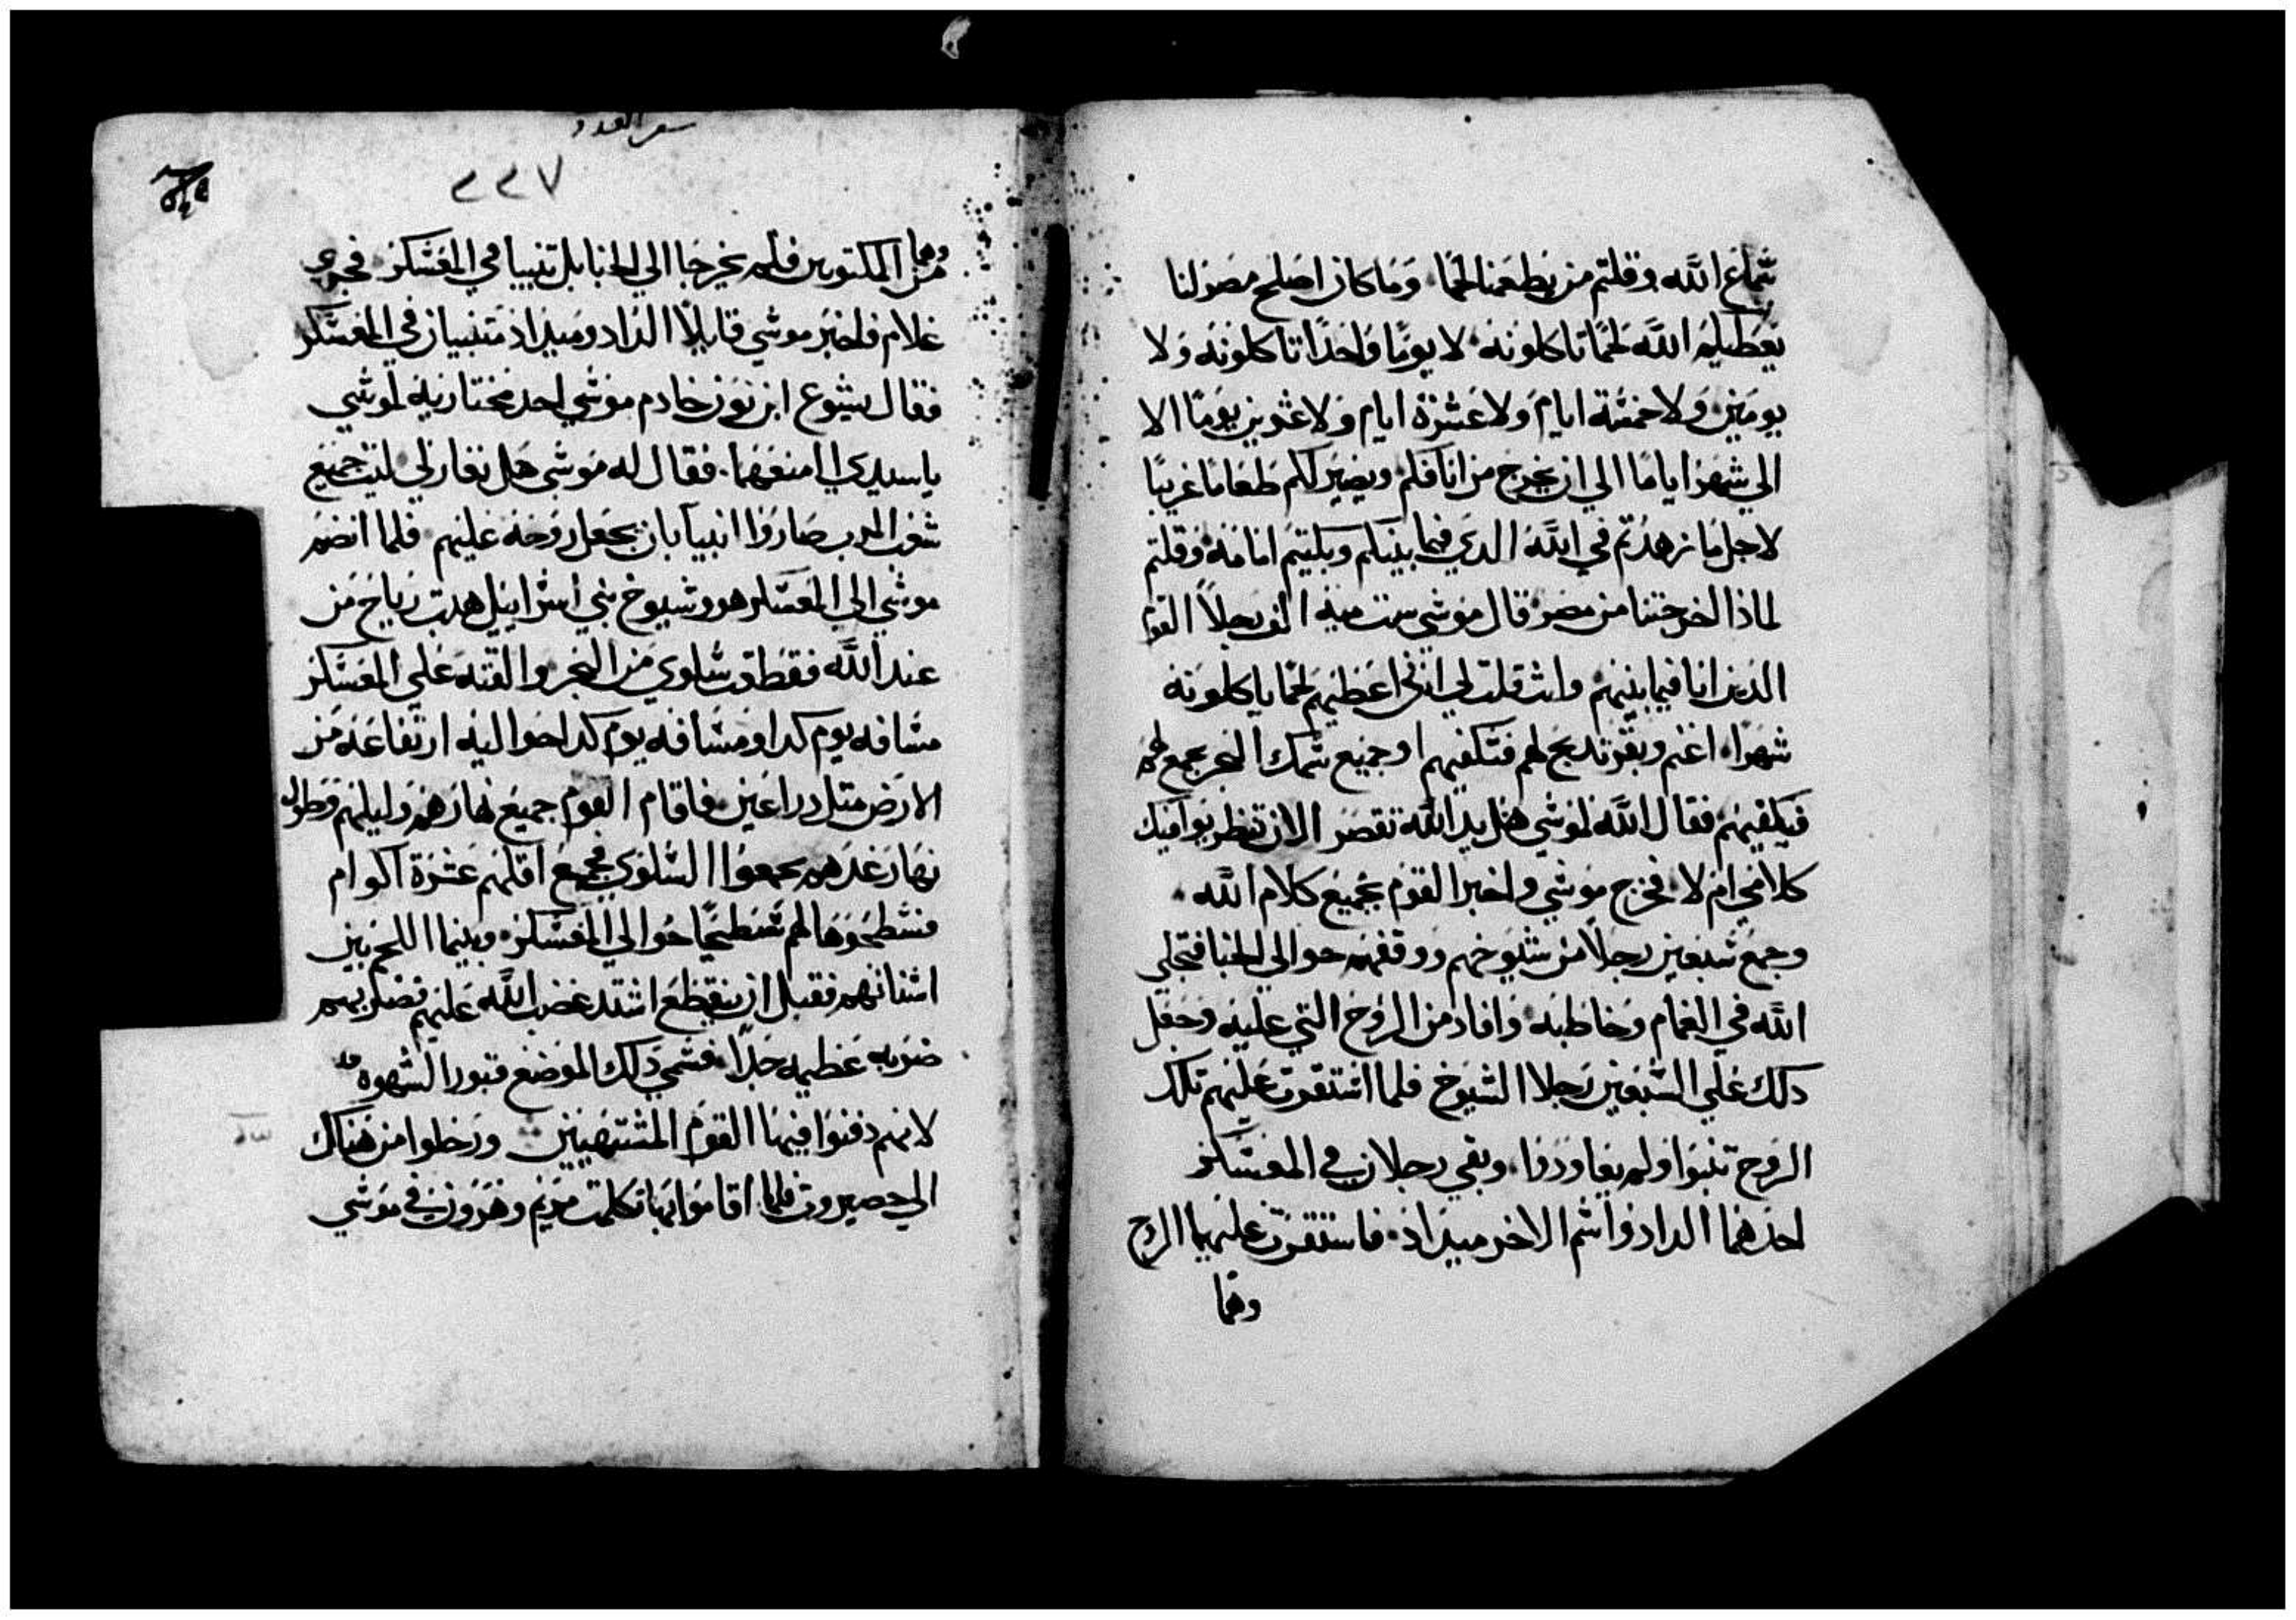 شماع الله وقلتم من يطعمنا لحمًا وما كان اصلح مصر لنا
يعطيكم الله لحمًا تاكلونه لا يومًا واحدًا تاكلونه ولا
يومين ولا خمسة ايام ولا عشرة ايام ولا عشرين يومًا الا
الي شهر اياما الي ان يخرج من انافكم ويصير لكم طعامًا غريبًا
لاجل ما زهدتم في الله الدي فيما بينكم وبكيتم امامه وقلتم
لماذا اخرجتنا من مصر قال موشي ست ميه الف رجلاً القوم
الدين انا فيما بينهم وانت قلت لي انني اعطيهم لحمًا ياكلونه
شهرًا اغنم وبقر تدبح لهم فتكفيهم او جميع شمك البحر يجمع لهم
فيكفيهم فقال الله لموشي هل يد الله تقصر الان تنظر يوافيك
كلامي ام لا فخرج موشي واخبر القوم بجميع كلام الله
وجمع شبعين رجلاً من شيوخهم ووقفهم حوالي الخبا فتجلي
الله في الغمام وخاطبه وافاد من الروح التي عليه وجعل
دلك علي الشبعين رجلا الشيوخ فلما اشتقرت عليهم تلك
الروح تنبوا ولم يعاودوا وبقي رجلان في المعشكر
احدهما الداد واشم الاخر ميداد فاستقرت عليهما الروح
وهما
سفر العدد
٢٢٧
وهما من المكتوبين فلم يخرجا الي الخبا بل تنبيا في المعشكر فجري
غلام فاخبر موشي قايلاً الداد وميداد متنبيان في المعشكر
فقال يشوع ابن نون خادم موشي احد مختاريه لموشي
ياسيدي امنعهما فقال له موشي هل تغار لي ليت جميع
شعب الرب صاروا انبيا بان يجعل روحه عليهم فلما انضم
موشي الي المعشكر هو وشيوخ بني اشراييل هبت رياح من
عند الله فقطعت شلوي من البحر والقته علي المعشكر
مشافه يوم كدا ومشافه يوم كدا حواليه ارتفاعه من
الارض متل دراعين فاقام القوم جميع نهارهم وليلهم وطول
نهار غدهم يجمعوا السلوي فجمع اقلهم عشرة اكوام
فشطحوها لهم تشطيحًا حوالي المعشكر وبينما اللحم بين
اشنانهم فقبل ان ينقطع اشتد غضب الله عليهم فضربهم
ضربه عظيمه جدًا فشمي دلك الموضع قبور الشهوه
لانهم دفنوا فيها القوم المشتهيين ورحلوا من هناك
الي حصيروت فلما اقاموا بها تكلمت مريم وهرون في موشي